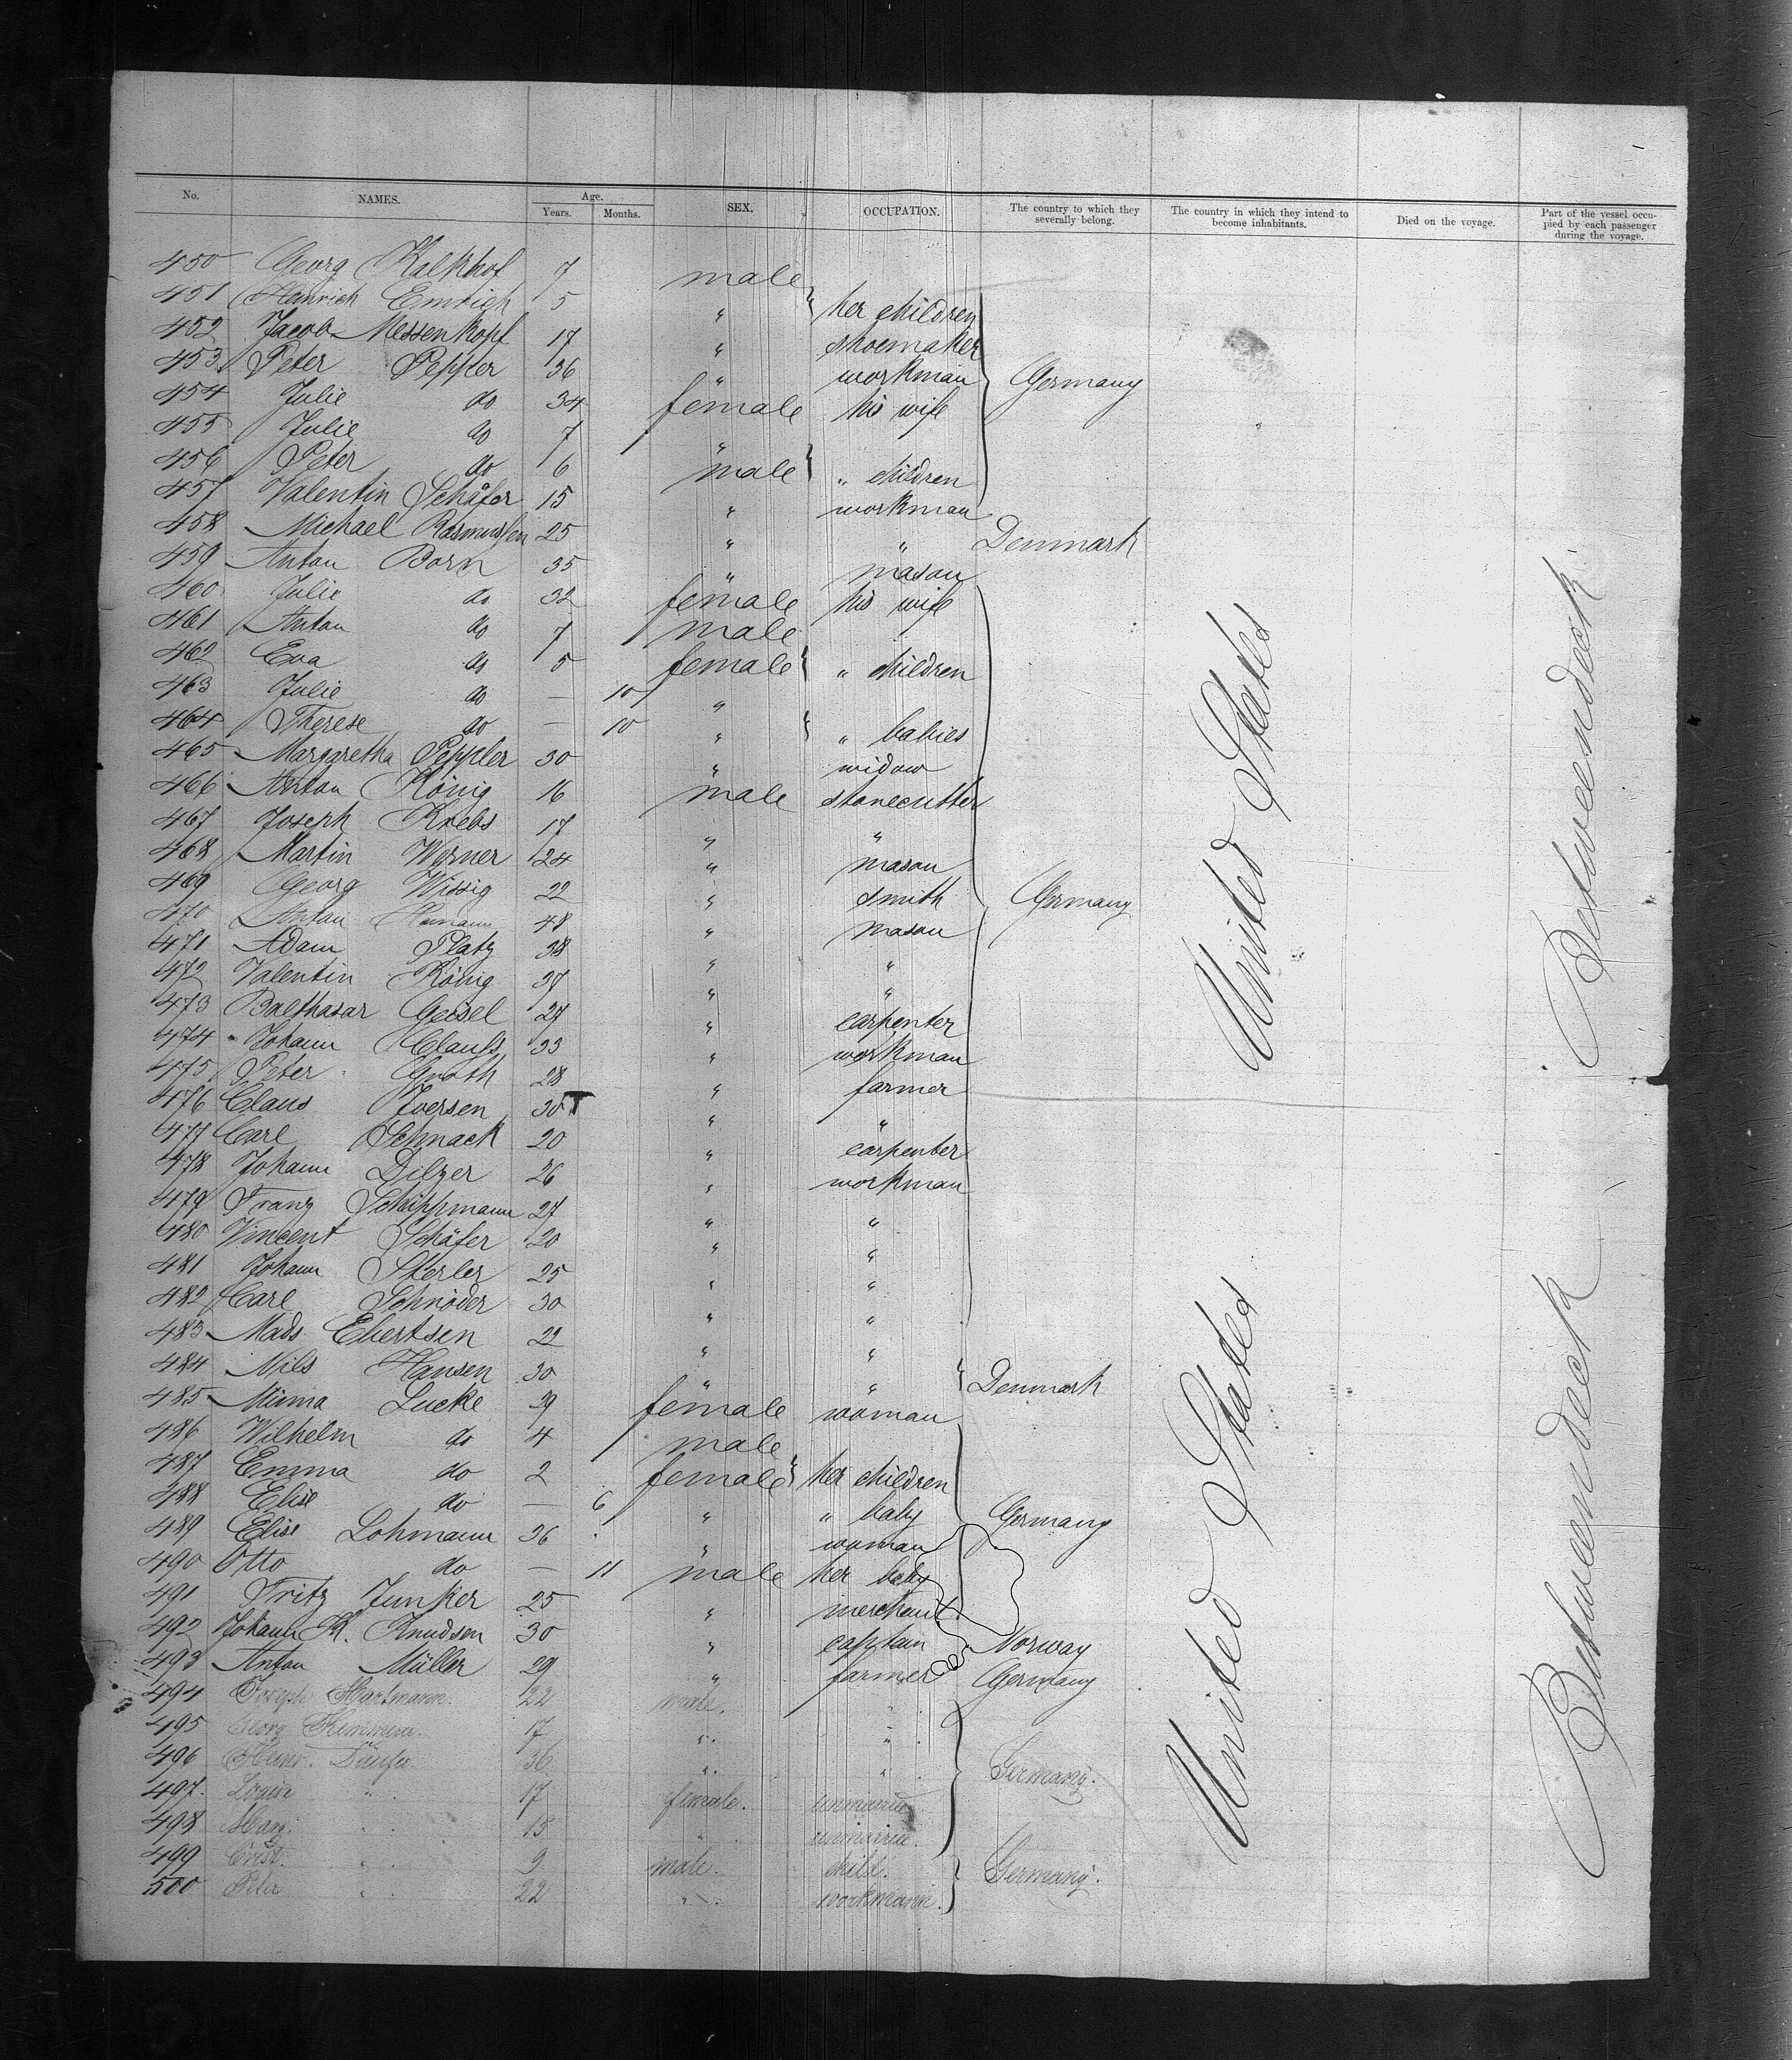 No. NAMES. Age. Years. Months. SEX. OCCUPATION. The country to which they severally belong. The country in which they intend to become inhabitants. Died on the voyage. Part of the vessel occupied by each passenger during the voyage.
450 Georg Kalkhof 7 male
451 Heinrich Emrich 5 " her children
452 Jacob Messenkopf 17 " shoemaker
453 Peter Pepper 36 " workman Germany
454 Julie do 34 female his wife
455 Julie do 7 "
456 Peter do 6 male " children
457 Valentin Schäfer 15 " workman
458 Michael Rasmussen 25 " " Denmark
459 Anton Born 35 " mason
460 Julie do 32 female his wife
461 Anton do 7 male
462 Eva do 5 female " children
463 Julie do — 10 "
464 Therese do — 10 " " babies
465 Margaretha Peppler 30 " widow
466 Anton König 16 male stonecutter
467 Joseph Krebs 17 " "
468 Martin Werner 24 " mason
469 Georg Wissig 22 " smith Germany
470 Anton 48 " mason
471 Adam Platz 38 " "
472 Valentin König 37 " "
473 Balthasar Geisel 27 " carpenter
474 Johann Clauss 33 " workman
475 Peter Groth 28 " farmer
476 Claus Iversen 30 " "
477 Carl Schnack 20 " carpenter
478 Johann Dilzer 26 " workman
479 Franz Schippmann 27 " "
480 Vincent Schäfer 20 " "
481 Johann Sterler 25 " "
482 Carl Schröder 30 " "
483 Mads Ebertsen 22 " "
484 Nils Hansen 30 " " Denmark
485 Minna Lucke 29 female woman
486 Wilhelm do 4 male
487 Emma do 2 female her children
488 Elise do — 6 " " baby Germany
489 Elise Lohmann 36 " woman
490 Otto do — 11 male her baby
491 Fritz Junker 25 " merchant
492 Johann K. Knudsen 30 " captain Norway
493 Anton Müller 29 " farmer Germany
494 Joseph Hartmann 22 male. "
495 Georg 17 " "
496 36 " " Germany.
497. Louise " 17 female.
498 Marg. " 15 "
499 " 9 male. child. Germany.
500 Peter " 22 " workmann.
United States
United States
Betweendeck
Betweendeck